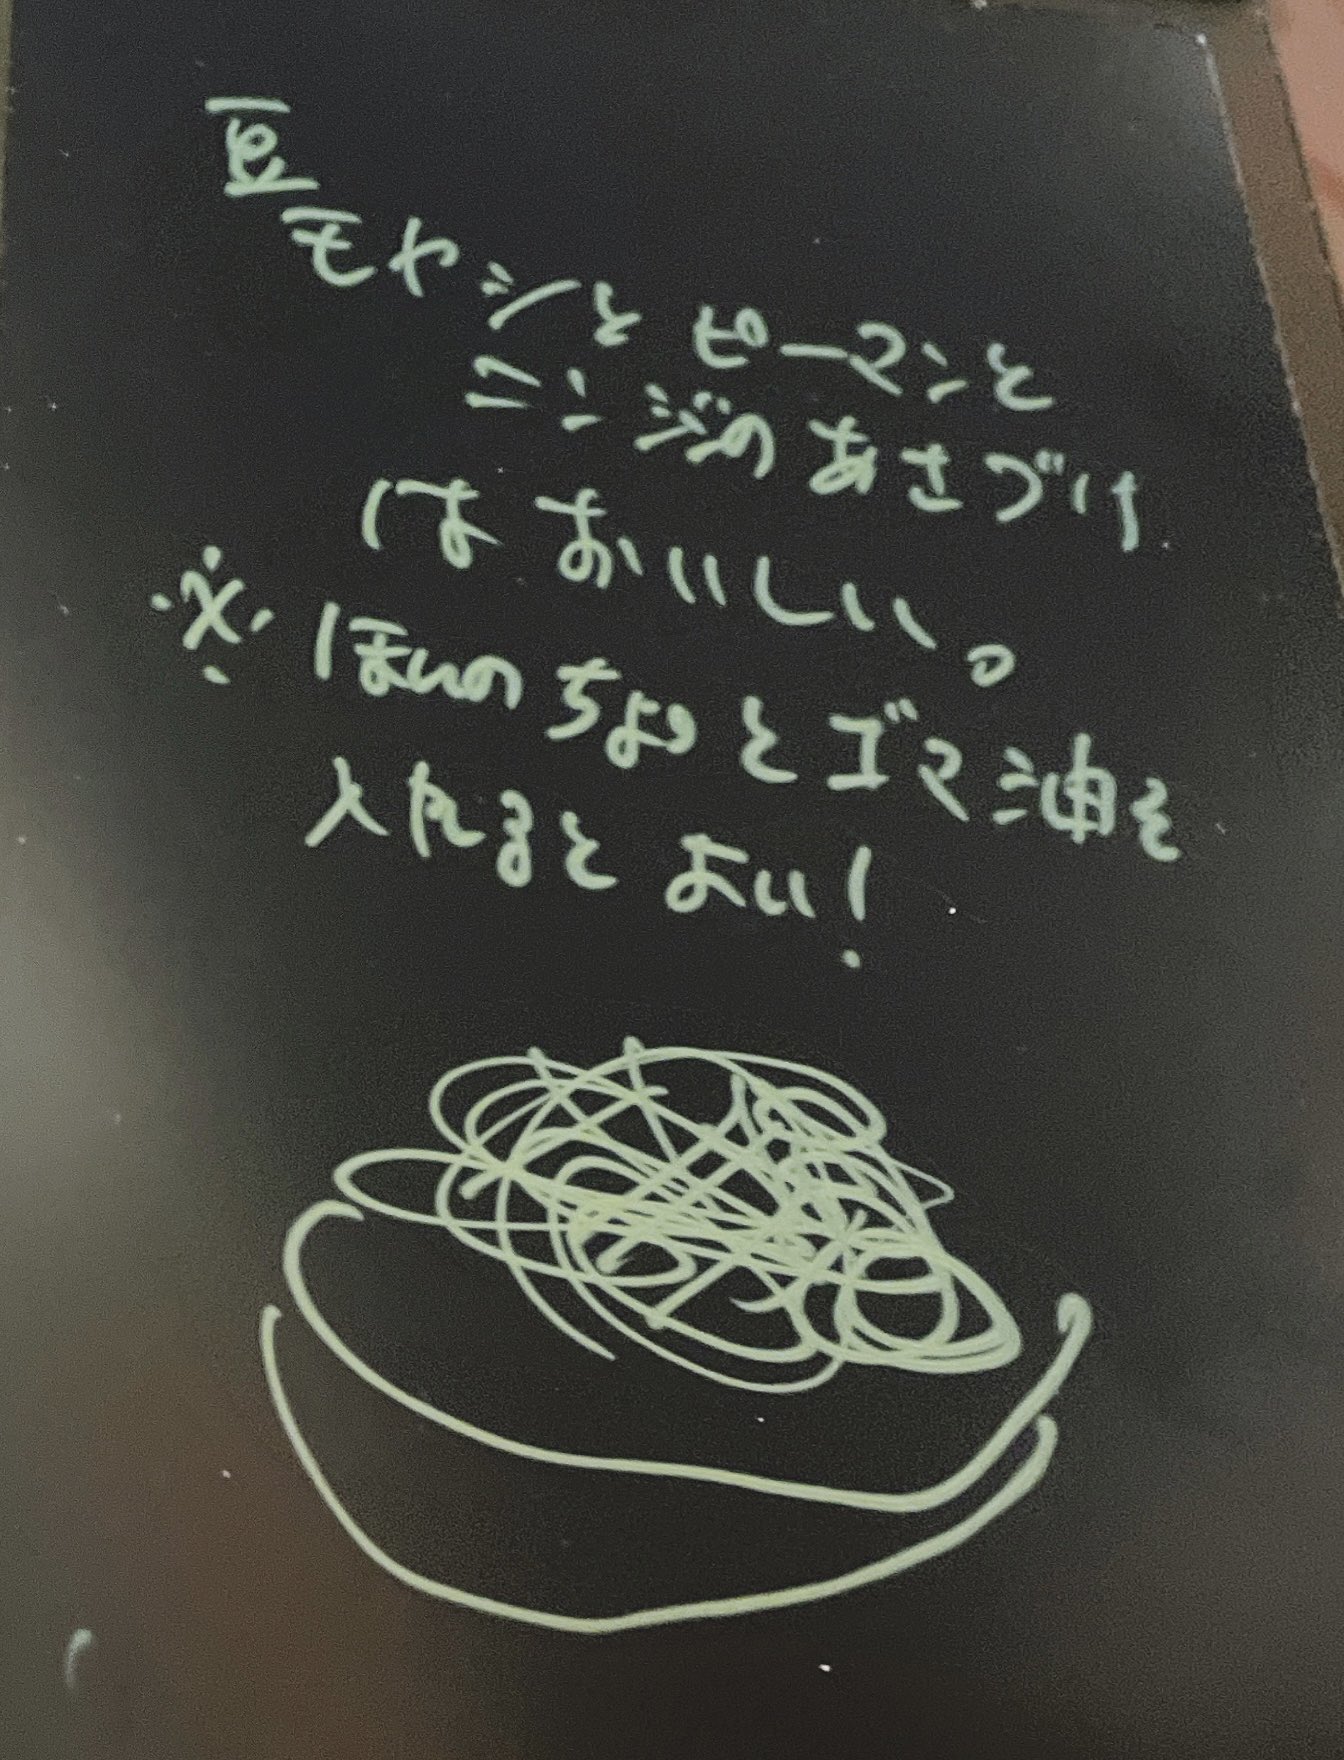 豆モヤシとピーマンと
ニンジのあさづけ
はおいしい。
※ ほいのちょっとゴマ油を
入れるとよい!